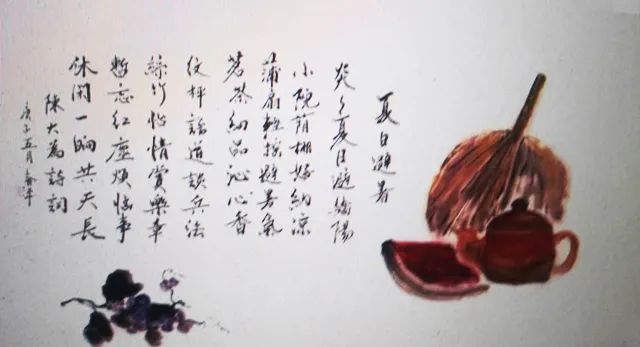 夏日避暑
炎々夏日避驕陽
小院荫棚好納涼
蒲扇輕摇避暑氣
茗茶細品沁心香
纹枰論道談兵法
絲竹怡情賞樂章
暫忘红塵煩惱事
休閑一晌共天長
陳大為詩詞
庚子五月